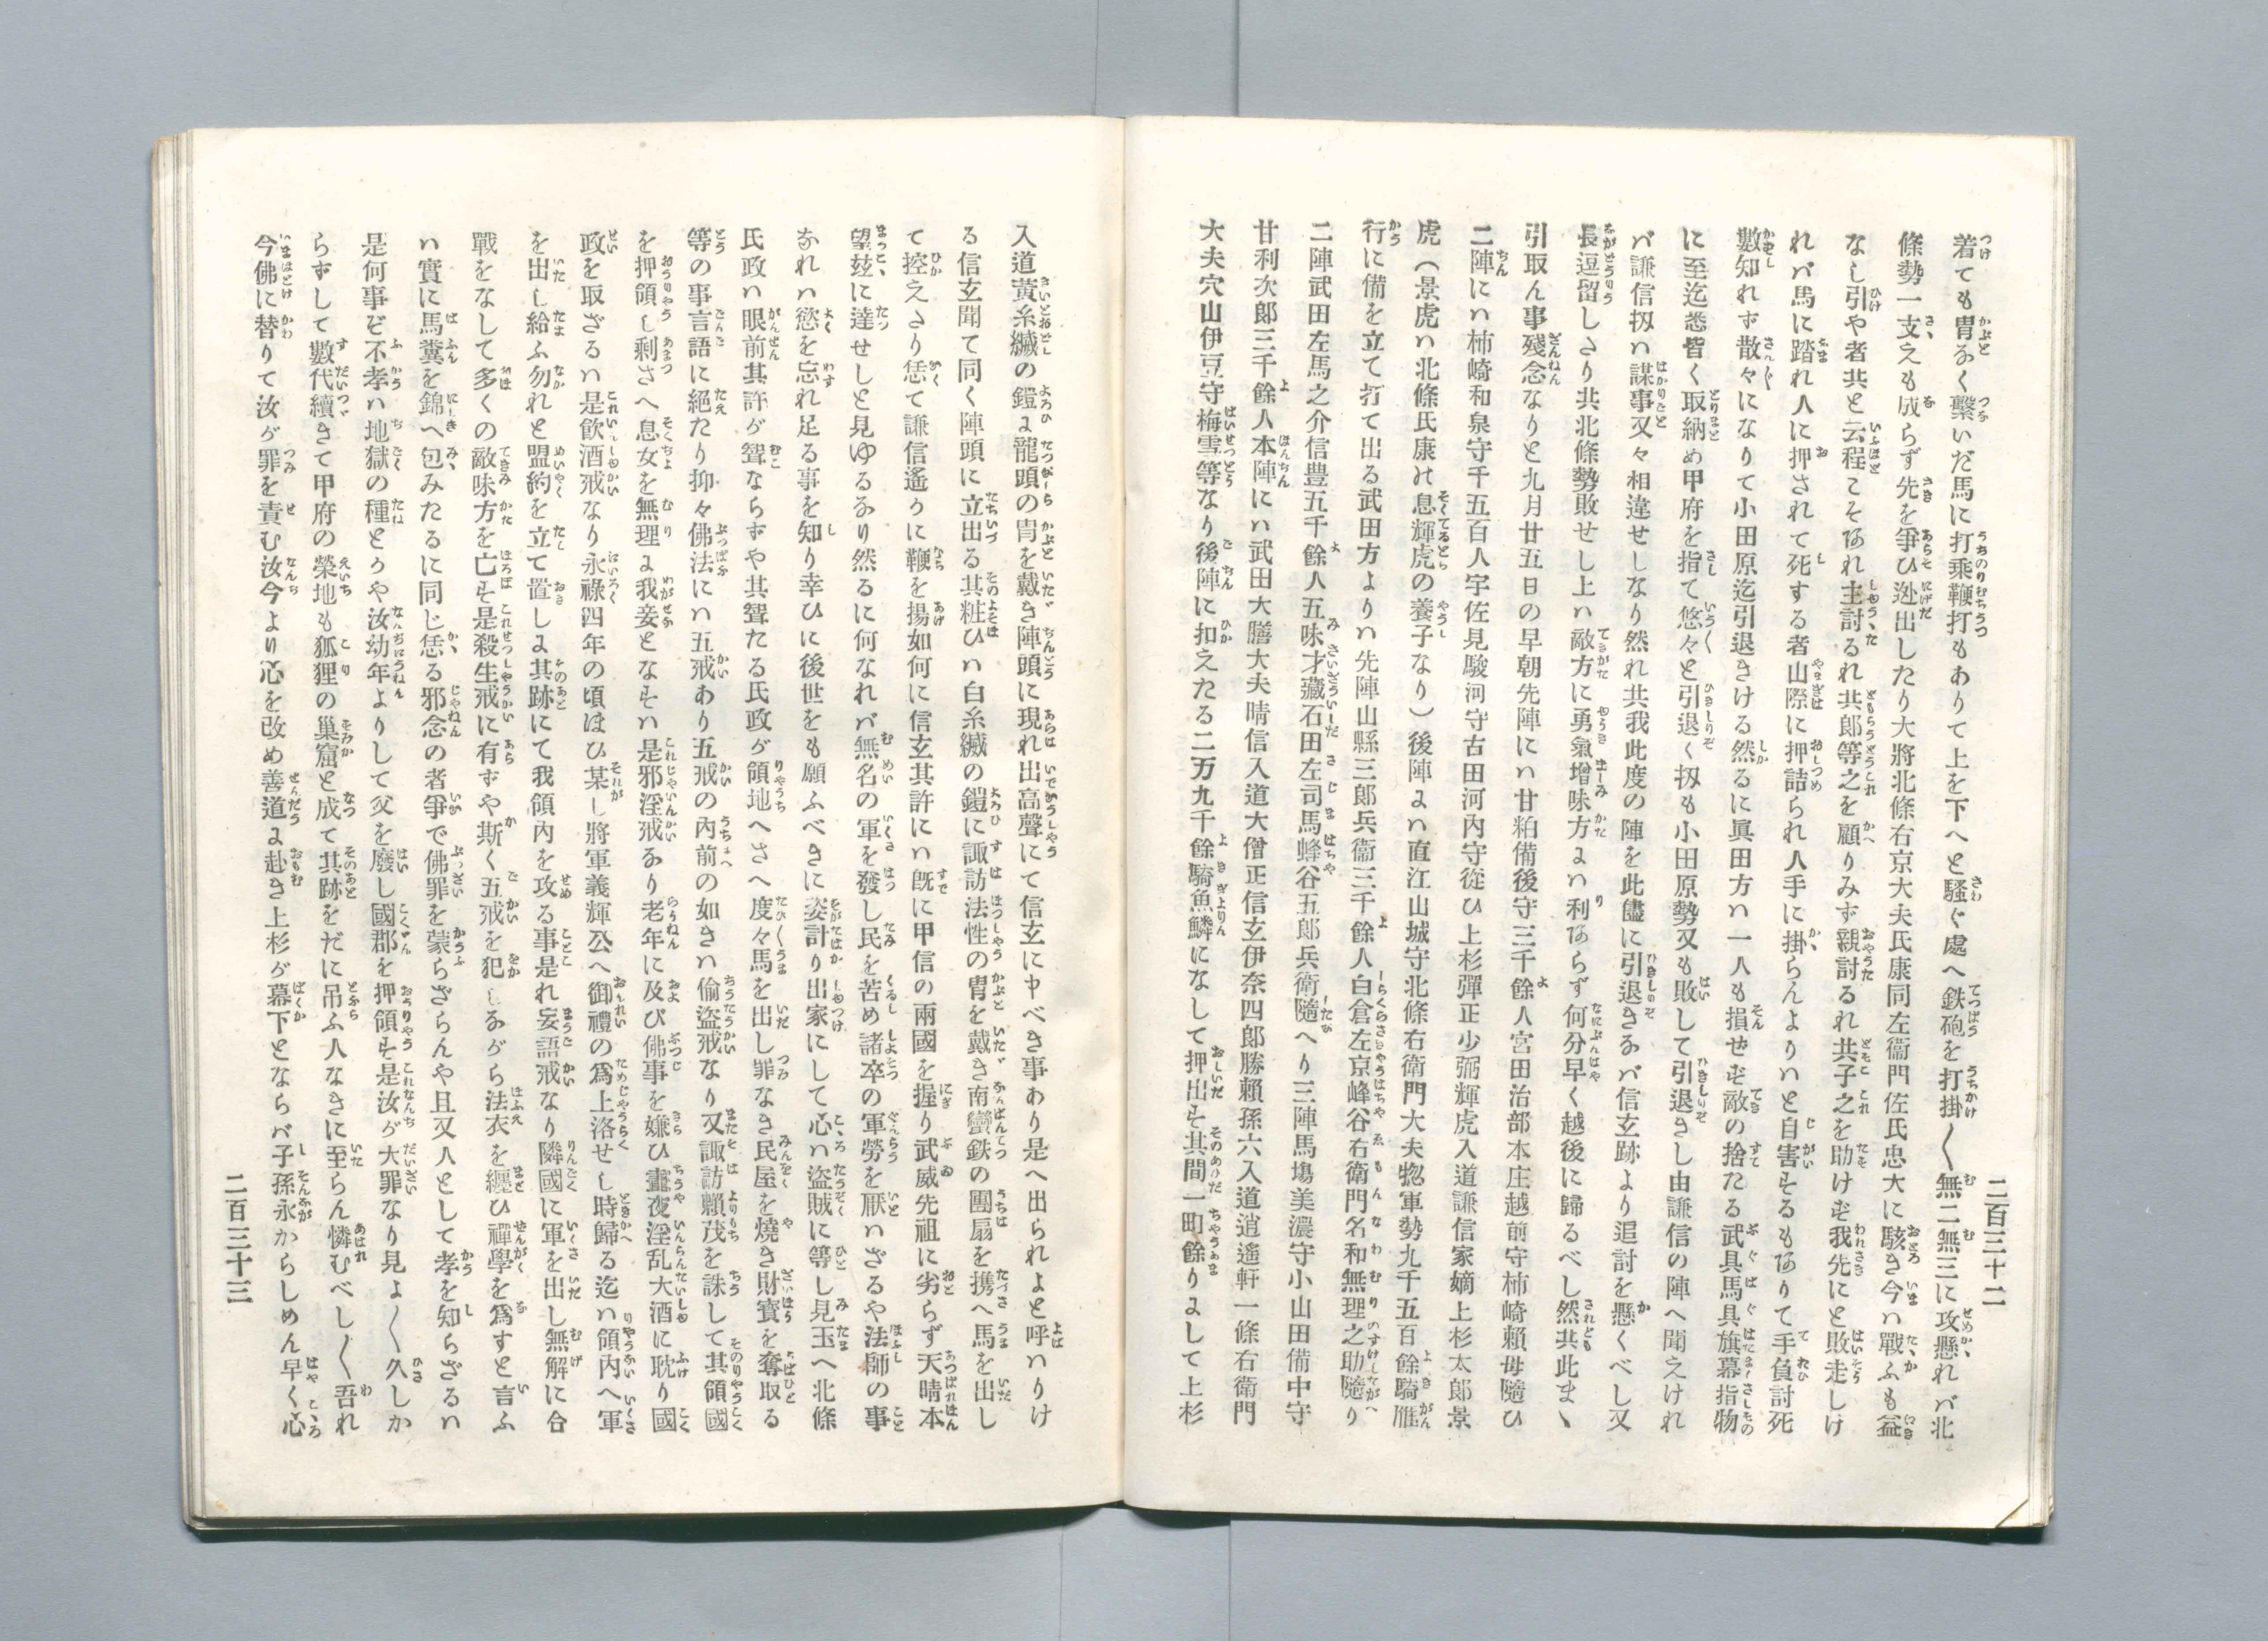 二百三十二
着ても冑なく繋いだ馬に打乗鞭打もありて上を下へと騒ぐ處へ鉄砲を打掛〱無二無三に攻懸れバ北
條勢一支えも成らず先を爭ひ迯出したり大將北條右京大夫氏康同左衞門佐氏忠大に駭き今ハ戰ふも益
なし引や者共と云程こそあれ主討るれ共郎等之を顧りみず親討るれ共子之を助けず我先にと敗走しけ
れバ馬に踏れ人に押されて死する者山際に押詰られ人手に掛らんよりハと自害するもありて手負討死
數知れず散々になりて小田原迄引退きける然るに眞田方ハ一人も損せず敵の捨たる武具馬具旗幕指物
に至迄悉皆く取納め甲府を指て悠々と引退く扨も小田原勢又も敗して引退きし由謙信の陣へ聞えけれ
バ謙信扨ハ謀事又々相違せしなり然れ共我此度の陣を此儘に引退きなバ信玄跡より追討を懸くべし又
長逗留しさり共北條勢敗せし上ハ敵方に勇氣增味方よハ利あらず何分早く越後に歸るべし然共此まヽ
引取ん事殘念なりと九月廿五日の早朝先陣にハ甘粕備後守三千餘人宮田治部本庄越前守柿崎賴母隨ひ
二陣にハ柿崎和泉守千五百人宇佐見駿河守古田河內守從ひ上杉彈正少弼輝虎入道謙信家嫡上杉太郎景
虎（景虎ハ北條氏康の息輝虎の養子なり）後陣よハ直江山城守北條右衛門大夫惣軍勢九千五百餘騎雁
行に備を立て打て出る武田方よりハ先陣山縣三郎兵衞三千餘人白倉左京峰谷右衛門名和無理之助隨り
二陣武田左馬之介信豊五千餘人五味才藏石田左司馬蜂谷五郎兵衛隨へり三陣馬塲美濃守小山田備中守
甘利次郎三千餘人本陣にハ武田大膳大夫晴信入道大僧正信玄伊奈四郎勝賴孫六入道逍遙軒一條右衛門
大夫穴山伊豆守梅雪等なり後陣に扣えたる二万九千餘騎魚鱗になして押出す其間一町餘りよして上杉
入道黄糸縅の鎧よ龍頭の冑を戴き陣頭に現れ出高聲にて信玄に申べき事わり是へ出られよと呼ハりけ
る信玄聞て同く陣頭に立出る其粧ひハ白糸縅の鎧に諏訪法性の冑を戴き南蠻鉄の團扇を携へ馬を出し
て控えさり恁て謙信遙うに鞭を揚如何に信玄其許にハ既に甲信の兩國を握り武威先祖に劣らず天晴本
望玆に達せしと見ゆるなり然るに何なれバ無名の軍を發し民を苦め諸卒の軍勞を厭ハざるや法師の事
なれハ慾を忘れ足る事を知り幸ひに後世をも願ふべきに姿計り出家にして心ハ盜賊に等し見玉へ北條
氏政ハ眼前其許が聟ならずや其聟たる氏政が領地へさへ度々馬を出し罪なき民屋を燒き財寶を奪取る
等の事言語に絕たり抑々佛法にハ五戒あり五戒の內前の如きハ偷盜戒なり又諏訪賴茂を誅して其領國
を押領し剩さへ息女を無理よ我妾となすハ是邪淫戒なり老年に及び佛事を嫌ひ晝夜淫乱大酒に耽り國
政を取ざるハ是飮酒戒なり永祿四年の頃ほひ某し將軍義輝公へ御禮の爲上洛せし時歸る迄ハ領內へ軍
を出し給ふ勿れと盟約を立て置しよ其跡にて我領內を攻る事是れ妄語戒なり隣國に軍を出し無解に合
戰をなして多くの敵味方を亡す是殺生戒に有ずや斯く五戒を犯しながら法衣を纏ひ禪學を爲すと言ふ
ハ實に馬糞を錦へ包みたるに同じ恁る邪念の者爭で佛罪を蒙らざらんや且又人として孝を知らざるハ
是何事ぞ不孝ハ地獄の種とうや汝幼年よりして父を廢し國郡を押領す是汝が大罪なり見よ〱久しか
らずして數代續きて甲府の榮地も狐狸の巢窟と成て其跡をだに吊ふ人なきに至らん憐むべし〱吾れ
今佛に替りて汝が罪を責む汝今より心を改め善道よ赴き上杉が幕下とならバ子孫永からしめん早く心
二百三十三